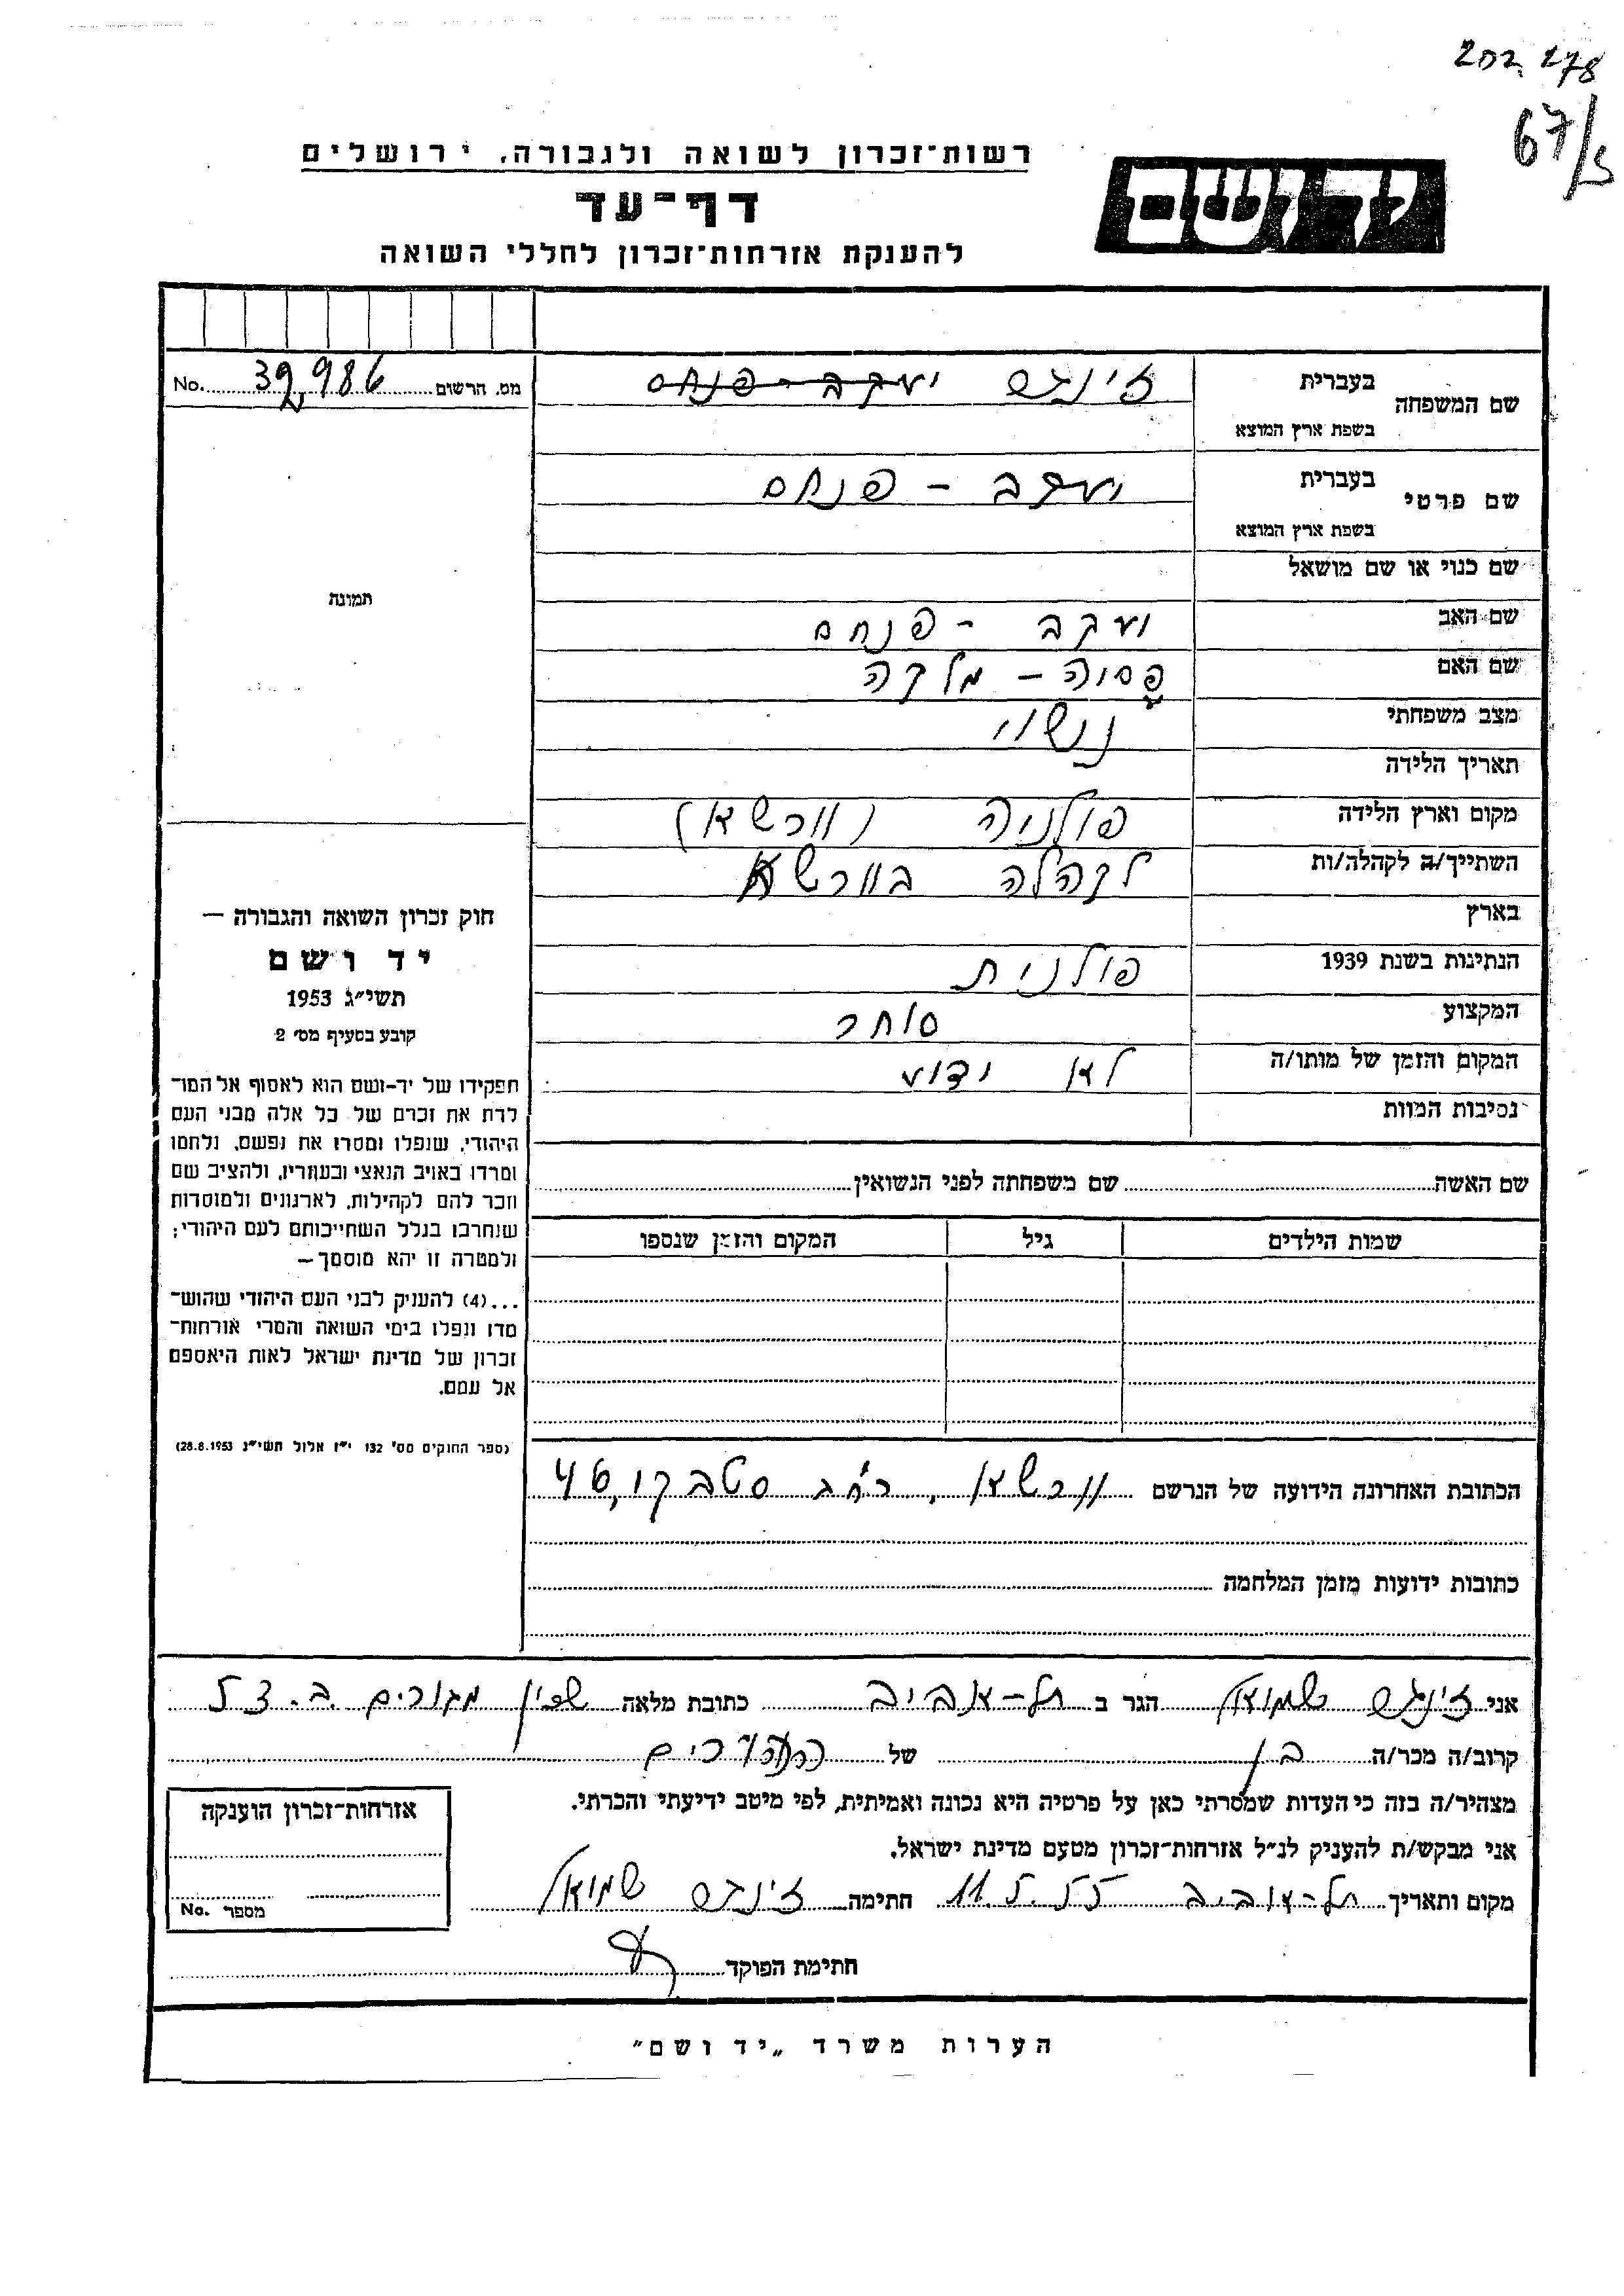 202,278
67/5
רשות־זכרון לשואה ולגבורה, ירושלים
יד ושם
דף־עד
להענקת אזרחות־זכרון לחללי השואה
שם המשפחה בעברית זינגס יעקב - פנחס
בשפת ארץ המוצא
מס. הרשום 39,986 No.
שם פרטי בעברית יעקב - פנחס
בשפת ארץ המוצא
שם כנוי או שם מושאל
תמונה
שם האב יעקב - פנחס
שם האם פסיה - מלקה
מצב משפחתי נשוי
תאריך הלידה
מקום וארץ הלידה פולניה (וורשא)
השתייך/ה לקהלה/ות לקהלה בוורשא
בארץ
הנתינות בשנת 1939 פולנית
המקצוע סוחר
המקום והזמן של מותו/ה לא ידוע
נסיבות המוות
חוק זכרון השואה והגבורה —
יד ושם
תשי״ג 1953
קובע בסעיף מס׳ 2
תפקידו של יד־ושם הוא לאסוף אל המו־
לדת את זכרם של כל אלה מבני העם
היהודי, שנפלו ומסרו את נפשם, נלחמו
ומרדו באויב הנאצי ובעוזריו, ולהציב שם
וזכר להם לקהילות, לארגונים ולמוסדות
שנחרבו בגלל השתייכותם לעם היהודי;
ולמטרה זו יהא מוסמך—
...(4) להעניק לבני העם היהודי שהוש־
מדו ונפלו בימי השואה והמרי אזרחות־
זכרון של מדינת ישראל לאות היאספם
אל עמם.
(ספר החוקים מס׳ 132 י״ז אלול תשי״ג 28.8.1953)
שם האשה שם משפחתה לפני הנשואין
שמות הילדים גיל המקום והזמן שנספו
הכתובת האחרונה הידועה של הנרשם וורשא, רח׳ סטבקי, 46
כתובות ידועות מזמן המלחמה
אני זינגס שמואל הגר ב תל-אביב כתובת מלאה שכון מגורים ב.צ 5
קרוב/ה מכר/ה בן של
מצהיר/ה בזה כי העדות שמסרתי כאן על פרטיה היא נכונה ואמיתית, לפי מיטב ידיעתי והכרתי.
אני מבקש/ת להעניק לנ״ל אזרחות־זכרון מטעם מדינת ישראל.
מקום ותאריך תל-אביב 11.5.55 חתימה זינגס שמואל
אזרחות־זכרון הוענקה
מספר No.
חתימת הפוקד
הערות משרד „יד ושם״